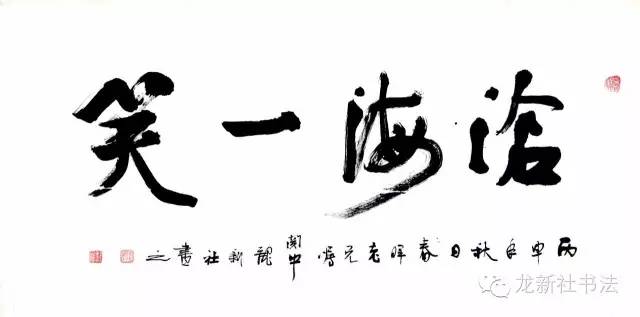 滄海一笑
丙申年秋日春晖老兄嘱關中龍新社書之
龙新社书法